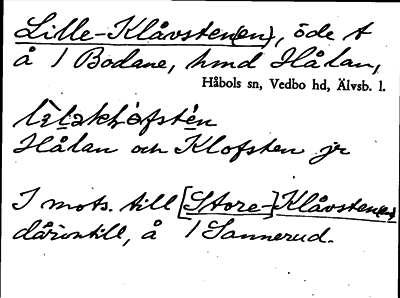 Lille-Klåvsten(en), öde t
å 1 Bodane, hmd Hålan,
Håbols sn, Vedbo hd, Älvsb. l.
Hålan och Klofsten jr
I mots. till [Store-]Klåvsten(en)
därintill, å 1 Sannerud.